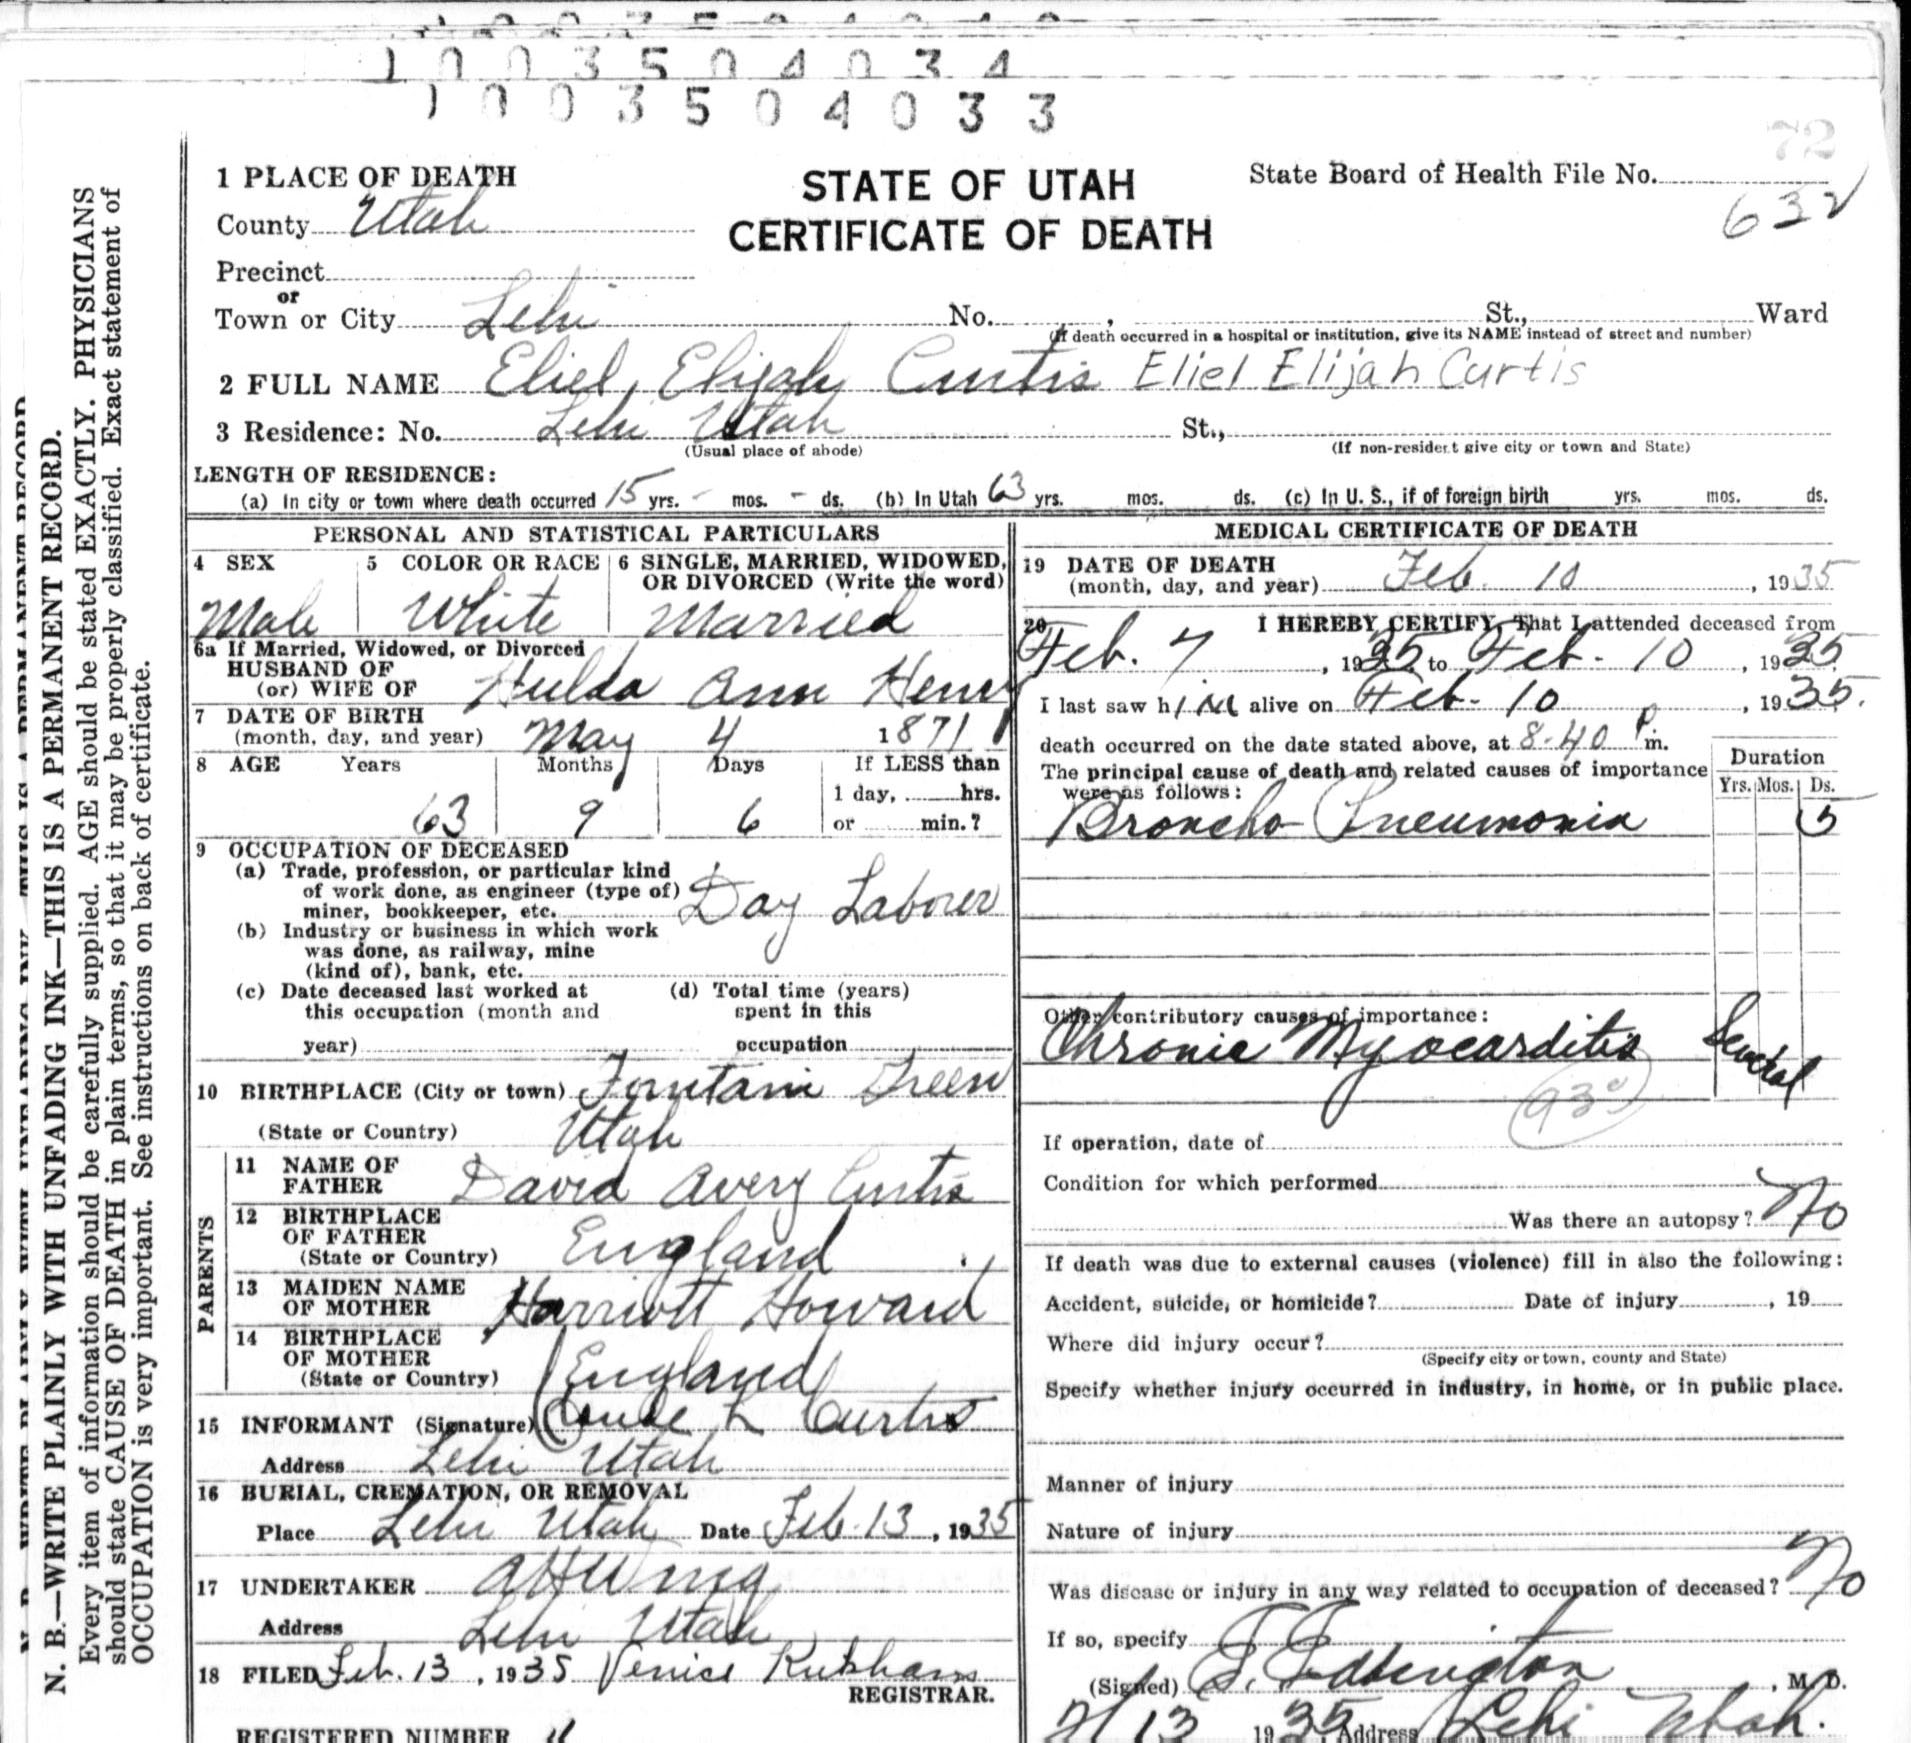 1003504034
1003504033
72
1 PLACE OF DEATH
STATE OF UTAH
CERTIFICATE OF DEATH
State Board of Health File No.
632
County Utah
Precinct
or
Town or City Lehi No. , St., Ward
(If death occurred in a hospital or institution, give its NAME instead of street and number)
2 FULL NAME Eliel Elijah Curtis Eliel Elijah Curtis
3 Residence: No. Lehi Utah St.,
(Usual place of abode) (If non-resident give city or town and State)
LENGTH OF RESIDENCE:
(a) In city or town where death occurred 15 yrs. - mos. - ds. (b) In Utah 63 yrs. mos. ds. (c) In U. S., if of foreign birth yrs. mos. ds.
PERSONAL AND STATISTICAL PARTICULARS
4 SEX 5 COLOR OR RACE 6 SINGLE, MARRIED, WIDOWED,
OR DIVORCED (Write the word)
Male White Married
6a If Married, Widowed, or Divorced
HUSBAND OF
(or) WIFE OF Hulda Ann Henry
7 DATE OF BIRTH
(month, day, and year) May 4 1871
8 AGE Years Months Days If LESS than
1 day, hrs.
63 9 6 or min.?
9 OCCUPATION OF DECEASED
(a) Trade, profession, or particular kind
of work done, as engineer (type of)
miner, bookkeeper, etc. Day Laborer
(b) Industry or business in which work
was done, as railway, mine
(kind of), bank, etc.
(c) Date deceased last worked at (d) Total time (years)
this occupation (month and spent in this
year) occupation
10 BIRTHPLACE (City or town) Fountain Green
(State or Country) Utah
PARENTS
11 NAME OF
FATHER David Avery Curtis
12 BIRTHPLACE
OF FATHER
(State or Country) England
13 MAIDEN NAME
OF MOTHER Harriott Howard
14 BIRTHPLACE
OF MOTHER
(State or Country) England
15 INFORMANT (Signature) Curtis
Address Lehi Utah
16 BURIAL, CREMATION, OR REMOVAL
Place Lehi Utah Date Feb. 13, 1935
17 UNDERTAKER A H Wing
Address Lehi Utah
18 FILED Feb. 13, 1935 Venice
REGISTRAR.
REGISTERED NUMBER
MEDICAL CERTIFICATE OF DEATH
19 DATE OF DEATH
(month, day, and year) Feb. 10, 1935
20 I HEREBY CERTIFY, That I attended deceased from
Feb. 7, 1935 to Feb. 10, 1935
I last saw him alive on Feb. 10, 1935.
death occurred on the date stated above, at 8-40 P m.
The principal cause of death and related causes of importance
were as follows:
Duration
Yrs. Mos. Ds.
Broncho Pneumonia 5
Other contributory causes of importance:
Chronic Myocarditis Several
If operation, date of
Condition for which performed
Was there an autopsy? No
If death was due to external causes (violence) fill in also the following:
Accident, suicide, or homicide? Date of injury , 19
Where did injury occur?
(Specify city or town, county and State)
Specify whether injury occurred in industry, in home, or in public place.
Manner of injury
Nature of injury
Was disease or injury in any way related to occupation of deceased? No
If so, specify
(Signed) , M. D.
2/13 1935 Address Lehi Utah.
N. B.—WRITE PLAINLY WITH UNFADING INK—THIS IS A PERMANENT RECORD.
Every item of information should be carefully supplied. AGE should be stated EXACTLY. PHYSICIANS
should state CAUSE OF DEATH in plain terms, so that it may be properly classified. Exact statement of
OCCUPATION is very important. See instructions on back of certificate.